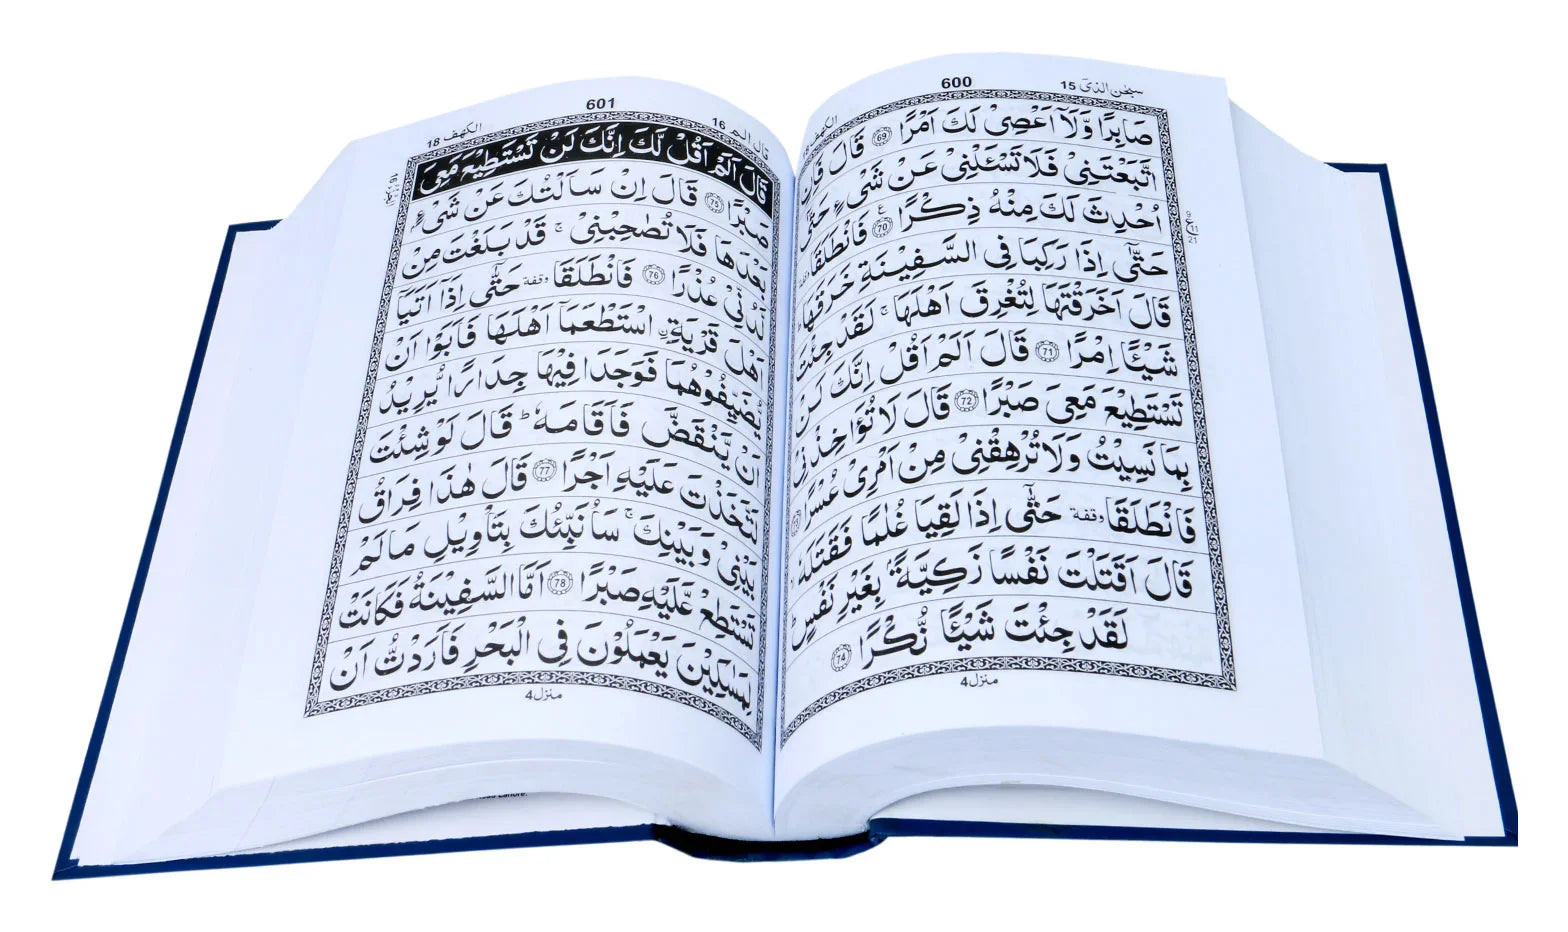 600
سبحٰن الذیٓ 15
الكهف
صَابِرًا وَّلَاۤ اَعْصِیْ لَكَ اَمْرًا ﴿69﴾ قَالَ فَاِنِ
اتَّبَعْتَنِیْ فَلَا تَسْـَٔلْنِیْ عَنْ شَیْءٍ حَتّٰۤی
اُحْدِثَ لَكَ مِنْهُ ذِكْرًا ﴿70﴾ ع فَانْطَلَقَا وقفة
حَتّٰۤی اِذَا رَكِبَا فِی السَّفِیْنَةِ خَرَقَهَا ؕ
قَالَ اَخَرَقْتَهَا لِتُغْرِقَ اَهْلَهَا ۚ لَقَدْ جِئْتَ
شَیْـًٔا اِمْرًا ﴿71﴾ قَالَ اَلَمْ اَقُلْ اِنَّكَ لَنْ
تَسْتَطِیْعَ مَعِیَ صَبْرًا ﴿72﴾ قَالَ لَا تُؤَاخِذْنِیْ
بِمَا نَسِیْتُ وَلَا تُرْهِقْنِیْ مِنْ اَمْرِیْ عُسْرًا ﴿73﴾
فَانْطَلَقَا وقفة حَتّٰۤی اِذَا لَقِیَا غُلٰمًا فَقَتَلَهٗ ۙ
قَالَ اَقَتَلْتَ نَفْسًا زَكِیَّةًۢ بِغَیْرِ نَفْسٍ ؕ
لَقَدْ جِئْتَ شَیْـًٔا نُّكْرًا ﴿74﴾
منزل 4
601
قال الم 16
الكهف 18
قَالَ اَلَمْ اَقُلْ لَّكَ اِنَّكَ لَنْ تَسْتَطِیْعَ مَعِیَ
صَبْرًا ﴿75﴾ قَالَ اِنْ سَاَلْتُكَ عَنْ شَیْءٍۭ
بَعْدَهَا فَلَا تُصٰحِبْنِیْ ۚ قَدْ بَلَغْتَ مِنْ
لَّدُنِّیْ عُذْرًا ﴿76﴾ فَانْطَلَقَا وقفة حَتّٰۤی اِذَاۤ اَتَیَاۤ
اَهْلَ قَرْیَةِ ِ۟اسْتَطْعَمَاۤ اَهْلَهَا فَاَبَوْا اَنْ
یُّضَیِّفُوْهُمَا فَوَجَدَا فِیْهَا جِدَارًا یُّرِیْدُ
اَنْ یَّنْقَضَّ فَاَقَامَهٗ ؕ قَالَ لَوْ شِئْتَ
لَتَّخَذْتَ عَلَیْهِ اَجْرًا ﴿77﴾ قَالَ هٰذَا فِرَاقُ
بَیْنِیْ وَبَیْنِكَ ۚ سَاُنَبِّئُكَ بِتَاْوِیْلِ مَا لَمْ
تَسْتَطِعْ عَّلَیْهِ صَبْرًا ﴿78﴾ اَمَّا السَّفِیْنَةُ فَكَانَتْ
لِمَسٰكِیْنَ یَعْمَلُوْنَ فِی الْبَحْرِ فَاَرَدْتُّ اَنْ
منزل 4